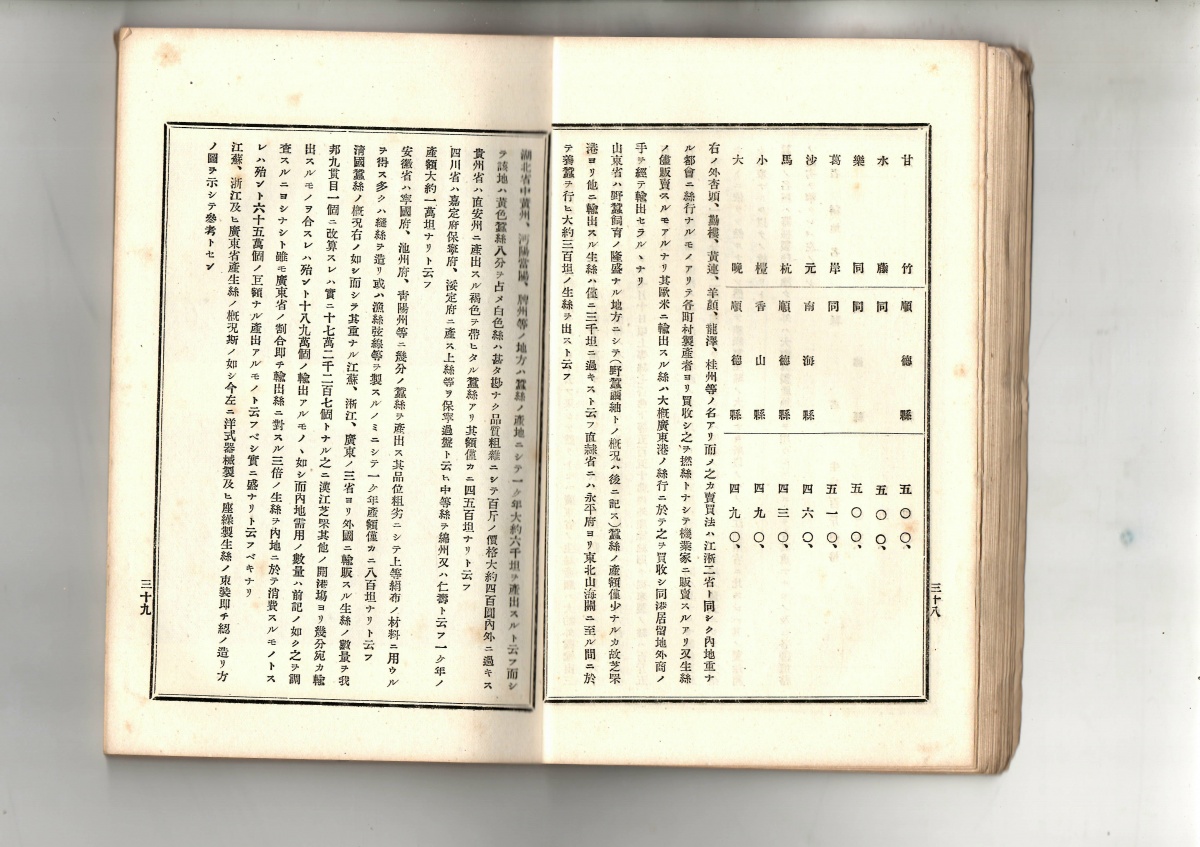 甘竹 順德縣 五〇〇、
水藤 同 五〇〇、
樂同 同 五〇〇、
葛岸 同 五一〇、
沙元 南海縣 四六〇、
馬杭 順德縣 四三〇、
小欖 香山縣 四九〇、
大晚 順德縣 四九〇、
右ノ外杏頭、勒樓、黃連、羊額、龍潭、桂州等ノ名アリ而〆之カ賣買法ハ江浙二省ト同シク內地重ナ
ル都會ニ絲行ナルモノアリテ各町村製產者ヨリ買收シ之ヲ撚絲トナシテ機業家ニ販賣スルアリ又生絲
ノ儘販賣スルモアルナリ其歐米ニ輸出スル絲ハ大概廣東港ノ絲行ニ於テ之ヲ買收シ同港居留地外商ノ
手ヲ經テ輸出セラルヽナリ
山東省ハ野蠶飼育ノ隆盛ナル地方ニシテ(野蠶繭紬トノ概況ハ後ニ記ス)蠶絲ノ產額僅少ナルカ故芝罘
港ヨリ他ニ輸出スル生絲ハ僅ニ三千坦ニ過キスト云フ直隷省ニハ永平府ヨリ東北山海關ニ至ル間ニ於
テ養蠶ヲ行ヒ大約三百坦ノ生絲ヲ出スト云フ
三十八
湖北省中黃州、河陽當陽、牌州等ノ地方ハ蠶絲ノ產地ニシテ一ケ年大約六千坦ヲ產出スルト云フ而シ
テ該地ハ黃色蠶絲八分ヲ占メ白色絲ハ甚タ尠ナク品質粗雜ニシテ百斤ノ價格大約四百圓內外ニ過キス
貴州省ハ直安州ニ產出スル褐色ヲ帶ヒタル蠶絲アリ其額僅カニ四五百坦ナリト云フ
四川省ハ嘉定府保寧府、綏定府ニ產ス上絲等ヲ保寧過盤ト云ヒ中等絲ヲ綿州又ハ仁壽ト云フ一ケ年ノ
產額大約一萬坦ナリト云フ
安徽省ハ寧國府、池州府、靑陽州等ニ幾分ノ蠶絲ヲ產出ス其品位粗劣ニシテ上等絹布ノ材料ニ用ウル
ヲ得ス多クハ縫絲ヲ造リ或ハ漁絲弦線等ヲ製スルノミニシテ一ケ年產額僅カニ八百坦ナリト云フ
淸國蠶絲ノ概況右ノ如シ而シテ其重ナル江蘇、浙江、廣東ノ三省ヨリ外國ニ輸販スル生絲ノ數量ヲ我
邦九貫目一個ニ改算スレハ實ニ十七萬二千二百七個トナル之ニ漢江芝罘其他ノ開港塲ヨリ幾分宛カ輸
出スルモノヲ合スレハ殆ント十八九萬個ノ輸出アルモノヽ如シ而內地需用ノ數量ハ前記ノ如ク之ヲ調
查スルニヨシナシト雖モ廣東省ノ割合即チ輸出絲ニ對スル三倍ノ生絲ヲ內地ニ於テ消費スルモノトス
レハ殆ント六十五萬個ノ巨額ナル產出アルモノト云フベシ實ニ盛ナリト云フベキナリ
江蘇、浙江及ヒ廣東省產生絲ノ概況斯ノ如シ今左ニ洋式器械製及ヒ座繰製生絲ノ束裝即チ綛ノ造リ方
ノ圖ヲ示シテ參考トセン
三十九